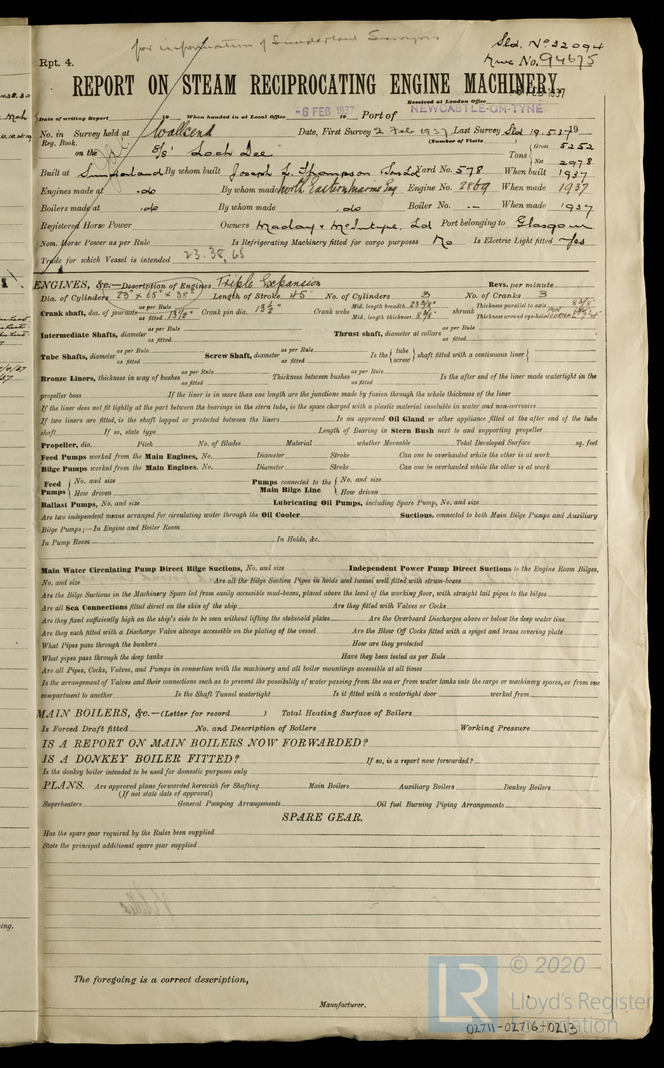 for information of Sunderland Surveyors
Sld. No 32094
Rpt. 4.
Nwc No. 94675
REPORT ON STEAM RECIPROCATING ENGINE MACHINERY.
Received at London Office FEB 1937
Date of writing Report to When handed in at Local Office -6 FEB 1937 Port of NEWCASTLE-ON-TYNE
No. in Survey held at Wallsend Date, First Survey 2 Feb 1937 Last Survey Sld 19.5.37 19
Reg. Book. (Number of Visits )
on the S/S "Loch Dee" Tons { Gross 5252 Net 2978
Built at Sunderland By whom built Joseph L. Thompson Sons Ld Yard No. 578 When built 1937
Engines made at do By whom made North Eastern Marine Eng Engine No. 2869 When made 1937
Boilers made at do By whom made do Boiler No. — When made 1937
Registered Horse Power Owners Maclay & McIntyre Ld Port belonging to Glasgow
Nom. Horse Power as per Rule Is Refrigerating Machinery fitted for cargo purposes No Is Electric Light fitted Yes
Trade for which Vessel is intended 23.38.65
ENGINES, &c.—Description of Engines Triple Expansion Revs. per minute
Dia. of Cylinders 23" x 65" x 38" Length of Stroke 45" No. of Cylinders 3 No. of Cranks 3
Crank shaft, dia. of journals as per Rule as fitted 13½" Crank pin dia. 13½" Crank webs Mid. length breadth 23⅜" Mid. length thickness shrunk Thickness parallel to axis 8⅜" Thickness around eye-hole
Intermediate Shafts, diameter as per Rule as fitted Thrust shaft, diameter at collars as per Rule as fitted
Tube Shafts, diameter as per Rule as fitted Screw Shaft, diameter as per Rule as fitted Is the { tube screw } shaft fitted with a continuous liner {
Bronze Liners, thickness in way of bushes as per Rule as fitted Thickness between bushes as per Rule as fitted Is the after end of the liner made watertight in the
propeller boss If the liner is in more than one length are the junctions made by fusion through the whole thickness of the liner
If the liner does not fit tightly at the part between the bearings in the stern tube, is the space charged with a plastic material insoluble in water and non-corrosive
If two liners are fitted, is the shaft lapped or protected between the liners Is an approved Oil Gland or other appliance fitted at the after end of the tube
shaft If so, state type Length of Bearing in Stern Bush next to and supporting propeller
Propeller, dia. Pitch No. of Blades Material whether Moveable Total Developed Surface sq. feet
Feed Pumps worked from the Main Engines, No. Diameter Stroke Can one be overhauled while the other is at work
Bilge Pumps worked from the Main Engines, No. Diameter Stroke Can one be overhauled while the other is at work
Feed Pumps { No. and size How driven Pumps connected to the Main Bilge Line { No. and size How driven
Ballast Pumps, No. and size Lubricating Oil Pumps, including Spare Pump, No. and size
Are two independent means arranged for circulating water through the Oil Cooler Suctions, connected to both Main Bilge Pumps and Auxiliary
Bilge Pumps;—In Engine and Boiler Room
In Pump Room In Holds, &c.
Main Water Circulating Pump Direct Bilge Suctions, No. and size Independent Power Pump Direct Suctions to the Engine Room Bilges,
No. and size Are all the Bilge Suction Pipes in holds and tunnel well fitted with strum-boxes
Are the Bilge Suctions in the Machinery Space led from easily accessible mud-boxes, placed above the level of the working floor, with straight tail pipes to the bilges
Are all Sea Connections fitted direct on the skin of the ship Are they fitted with Valves or Cocks
Are they fixed sufficiently high on the ship's side to be seen without lifting the stokehold plates Are the Overboard Discharges above or below the deep water line
Are they each fitted with a Discharge Valve always accessible on the plating of the vessel Are the Blow Off Cocks fitted with a spigot and brass covering plate
What Pipes pass through the bunkers How are they protected
What pipes pass through the deep tanks Have they been tested as per Rule
Are all Pipes, Cocks, Valves, and Pumps in connection with the machinery and all boiler mountings accessible at all times
Is the arrangement of Valves and their connections such as to prevent the possibility of water passing from the sea or from water tanks into the cargo or machinery spaces, or from one
compartment to another Is the Shaft Tunnel watertight Is it fitted with a watertight door worked from
MAIN BOILERS, &c.—(Letter for record ) Total Heating Surface of Boilers
Is Forced Draft fitted No. and Description of Boilers Working Pressure
IS A REPORT ON MAIN BOILERS NOW FORWARDED?
IS A DONKEY BOILER FITTED? If so, is a report now forwarded?
Is the donkey boiler intended to be used for domestic purposes only
PLANS. Are approved plans forwarded herewith for Shafting Main Boilers Auxiliary Boilers Donkey Boilers
(If not state date of approval)
Superheaters General Pumping Arrangements Oil fuel Burning Piping Arrangements
SPARE GEAR.
Has the spare gear required by the Rules been supplied
State the principal additional spare gear supplied
The foregoing is a correct description,
Manufacturer.
LR © 2020
Lloyd's Register
Foundation
02711-02716-0213